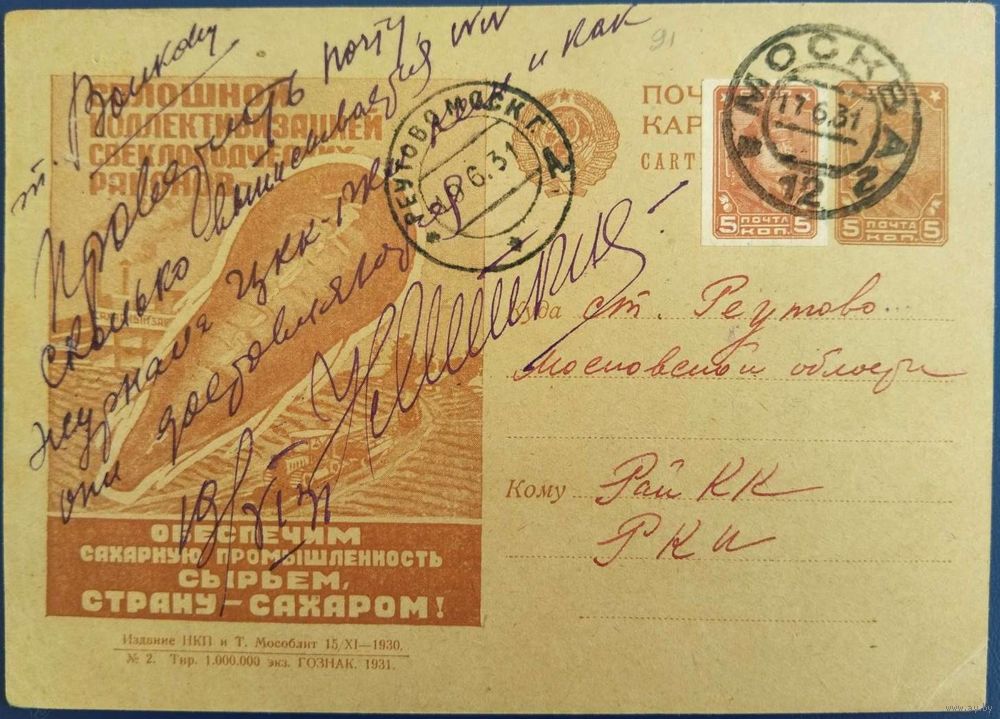 т. Волкову
Проверить почту,
сколько выписывается №№
журнала ЦКК-РКИ и как
они доставляются
19/VI 31
СПЛОШНОЙ
КОЛЛЕКТИВИЗАЦИЕЙ
СВЕКЛОВОДЧЕСКИХ
РАЙОНОВ
ОБЕСПЕЧИМ
САХАРНУЮ ПРОМЫШЛЕННОСТЬ
СЫРЬЕМ,
СТРАНУ — САХАРОМ!
Издание НКП и Т. Мособлит 15/XI—1930.
№ 2. Тир. 1.000.000 экз. ГОЗНАК. 1931.
91
РЕУТОВО МОСК. Г.
18 6.31
ПОЧ
КАР
CART
МОСКВА
17 6.31
12
5 ПОЧТА КОП. 5
5 ПОЧТА КОП. 5
Куда ст. Реутово
Московской области
Кому Рай КК
РКИ
www.ay.by